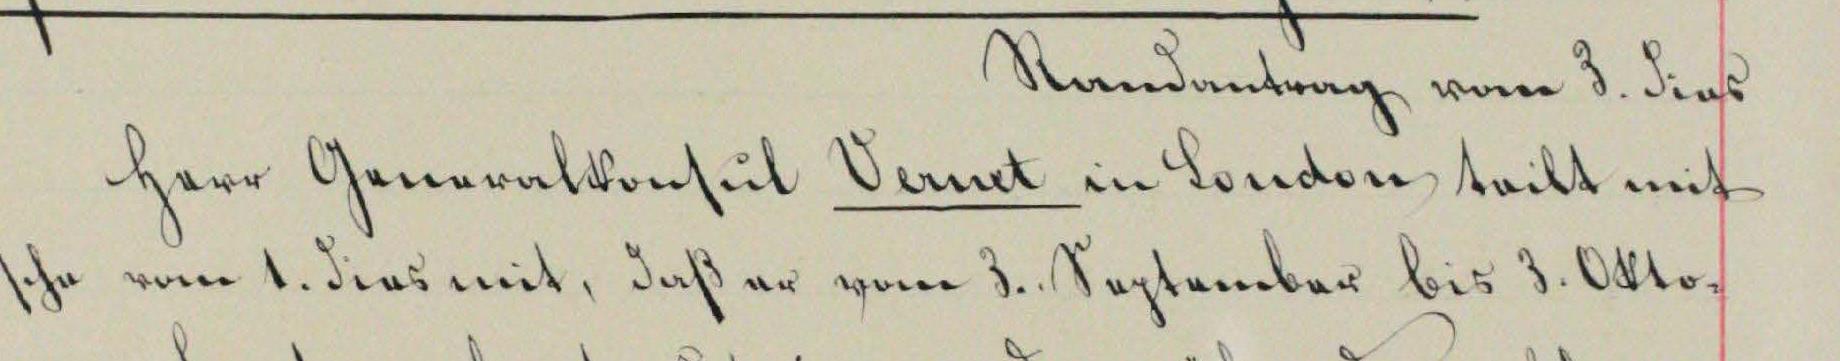 Randantrag vom 3. dies
Herr Generalkonsul Vernet in London teilt mit
sche vom 1. dies mit, daß er vom 3. September bis 3. Okto-